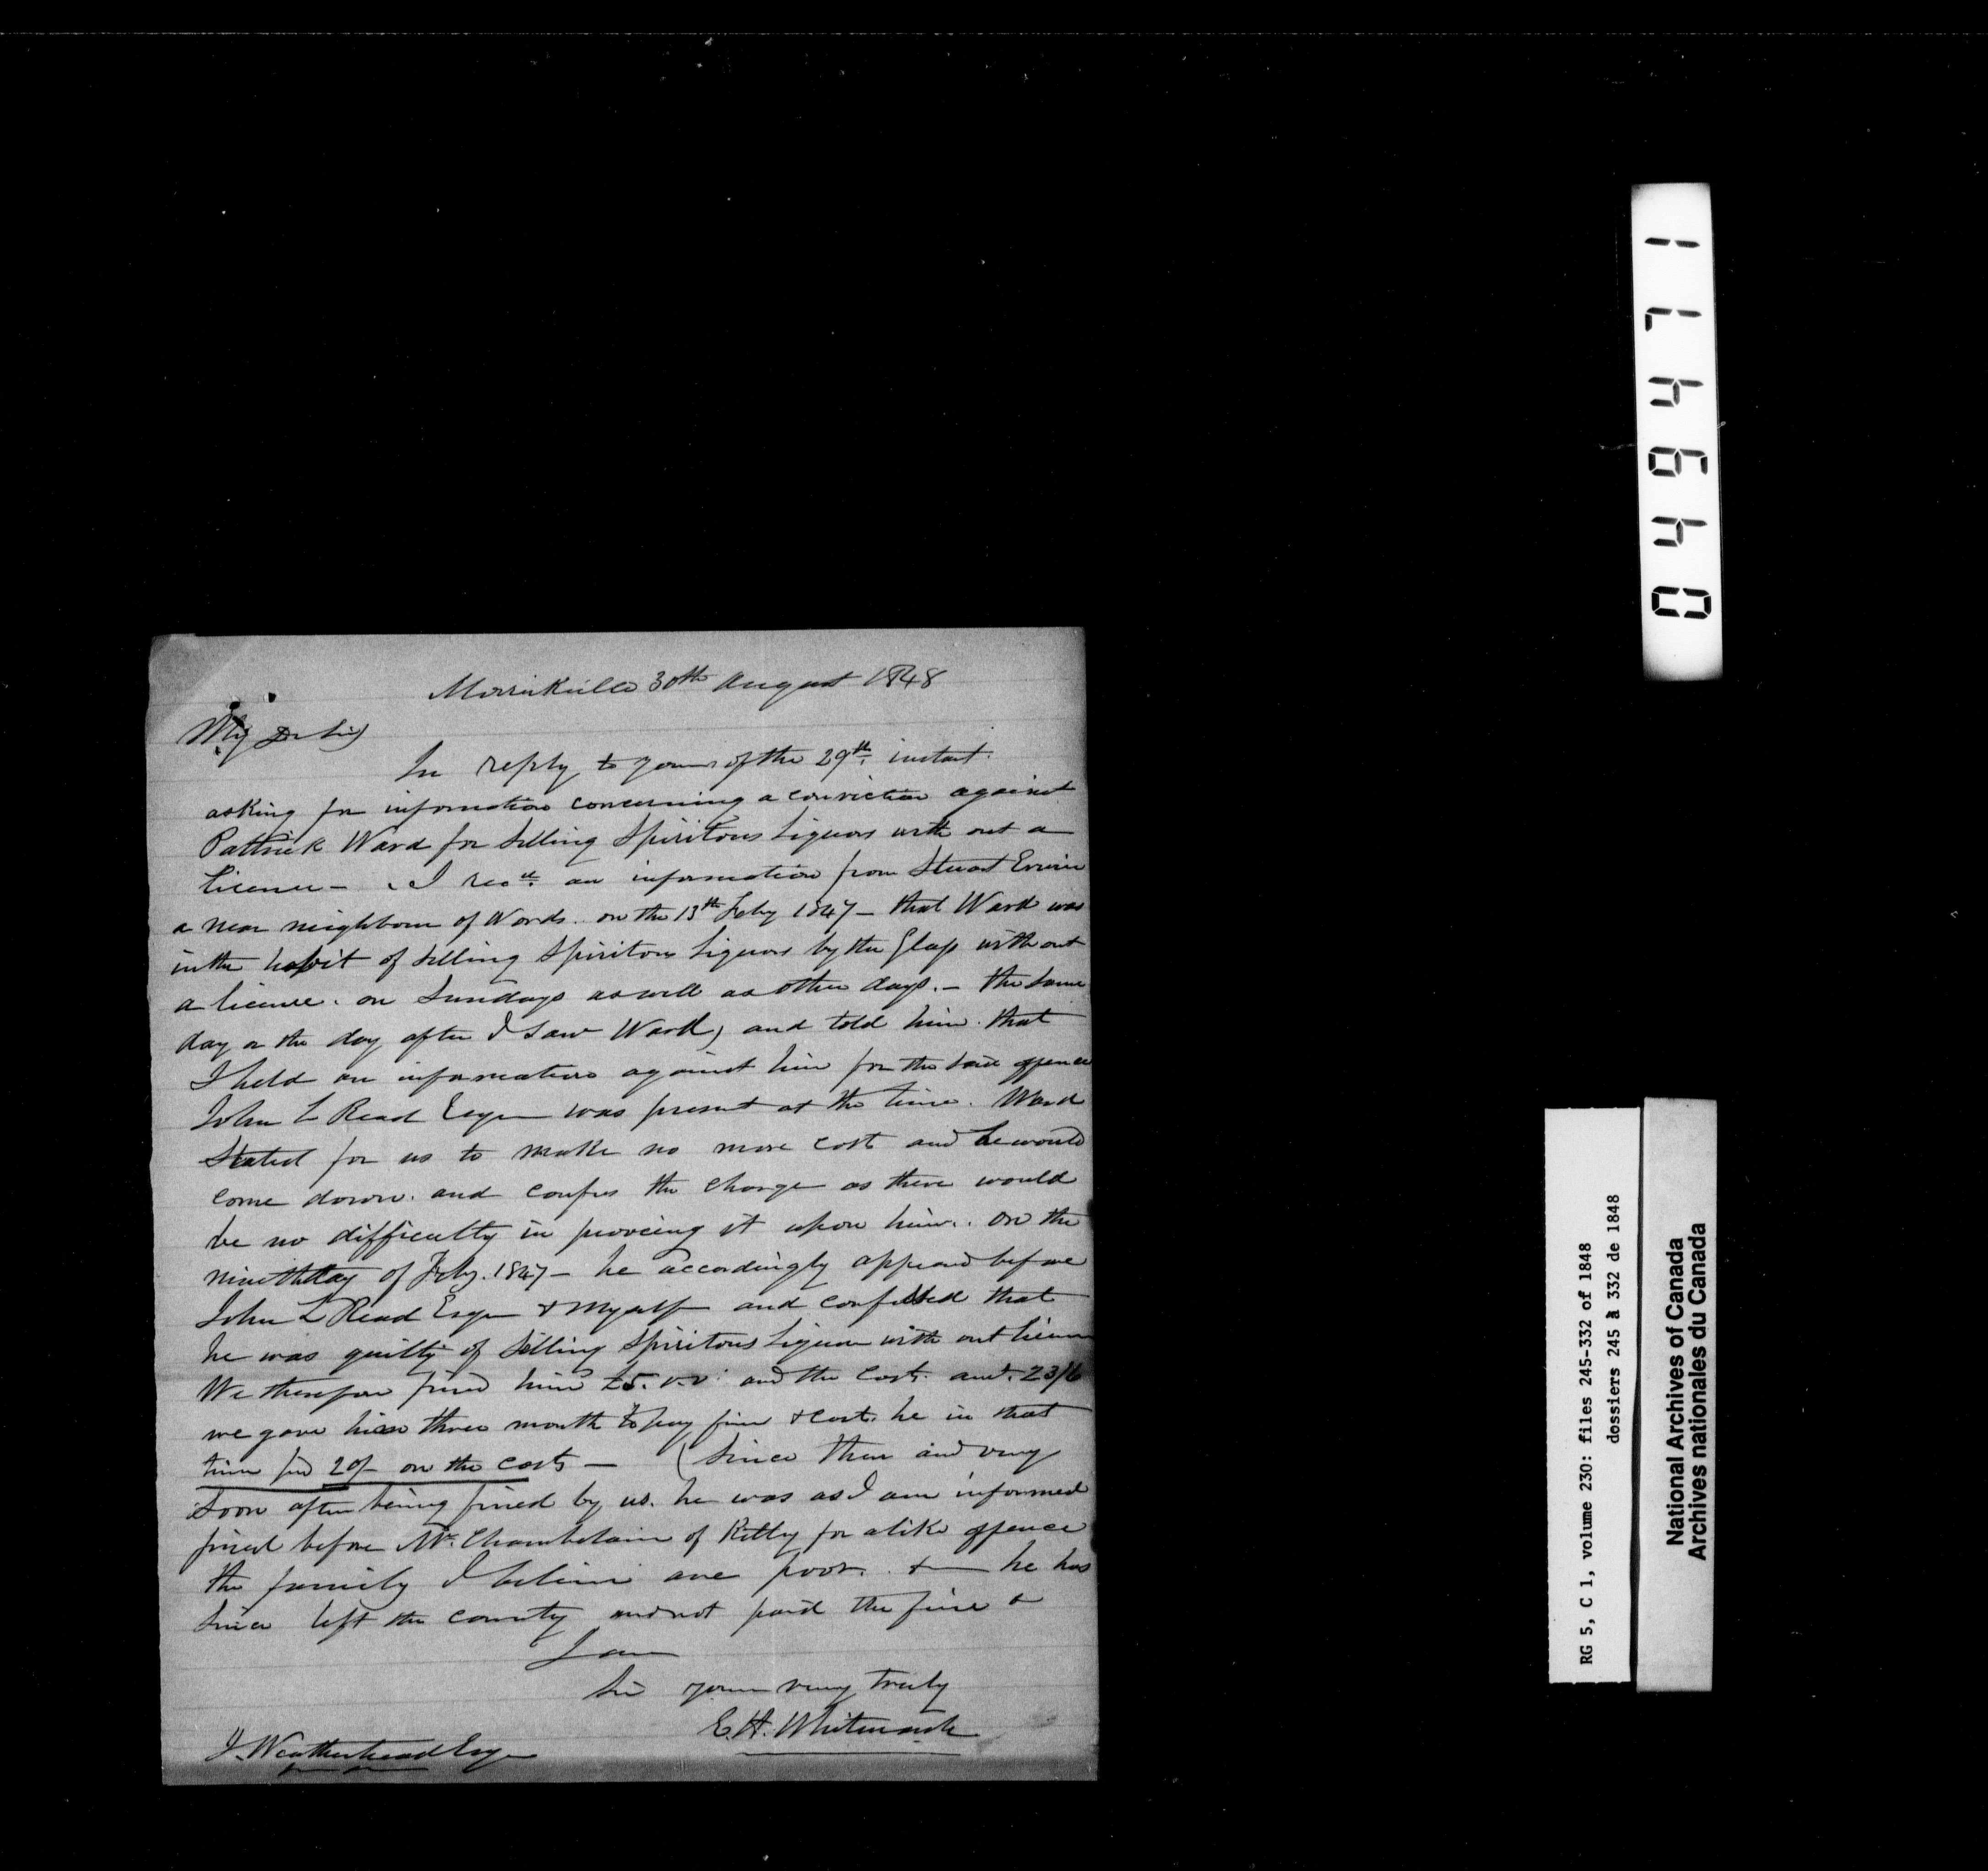 Merrickville 30th August 1848
My Dr Sir,
In reply to yours of the 29th instant.
asking for information concerning a conviction against
Pattrick Ward for Selling Spiritous Liquors with out a
Licence - I recd. an information from Stuart Erwin
a near neighbour of Wards. on the 13th Feby 1847 - that Ward was
in the habit of Selling Spiritous Liquors by the Glass without
a licence. on Sundays as well as other days. - the same
day or the day after I saw Ward, and told him that
I held an information against him for the said offence
John L Read Esqr was present at the time. Ward
Stated for us to make no more cost and he would
come down. and confess the charge as there would
be no difficulty in proveing it upon him. on the
day of Feby. 1847 - he accordingly appeard before
John L Read Esqr & Myself and confessed that
he was guilty of Selling Spiritous Liquor with out licence
We therefore fined him £5.0.0. and the Costs. amt. 23/6
we gave him three month to pay fine & Cost. he in that
time pd 20/- on the costs - (Since then and very
Soon after being fined by us. he was as I am informed
fined before Mr. Chamberlain of Kitley for a like offence
the family I believe are poor. & he has
Since left the county and not paid the fine &
I am
Sir yours very truly
E.H. Whitmarsh
J. Weatherhead Esqr
044-9471
RG 5, C 1, volume 230: files 245-332 of 1848
dossiers 245 à 332 de 1848
National Archives of Canada
Archives nationales du Canada